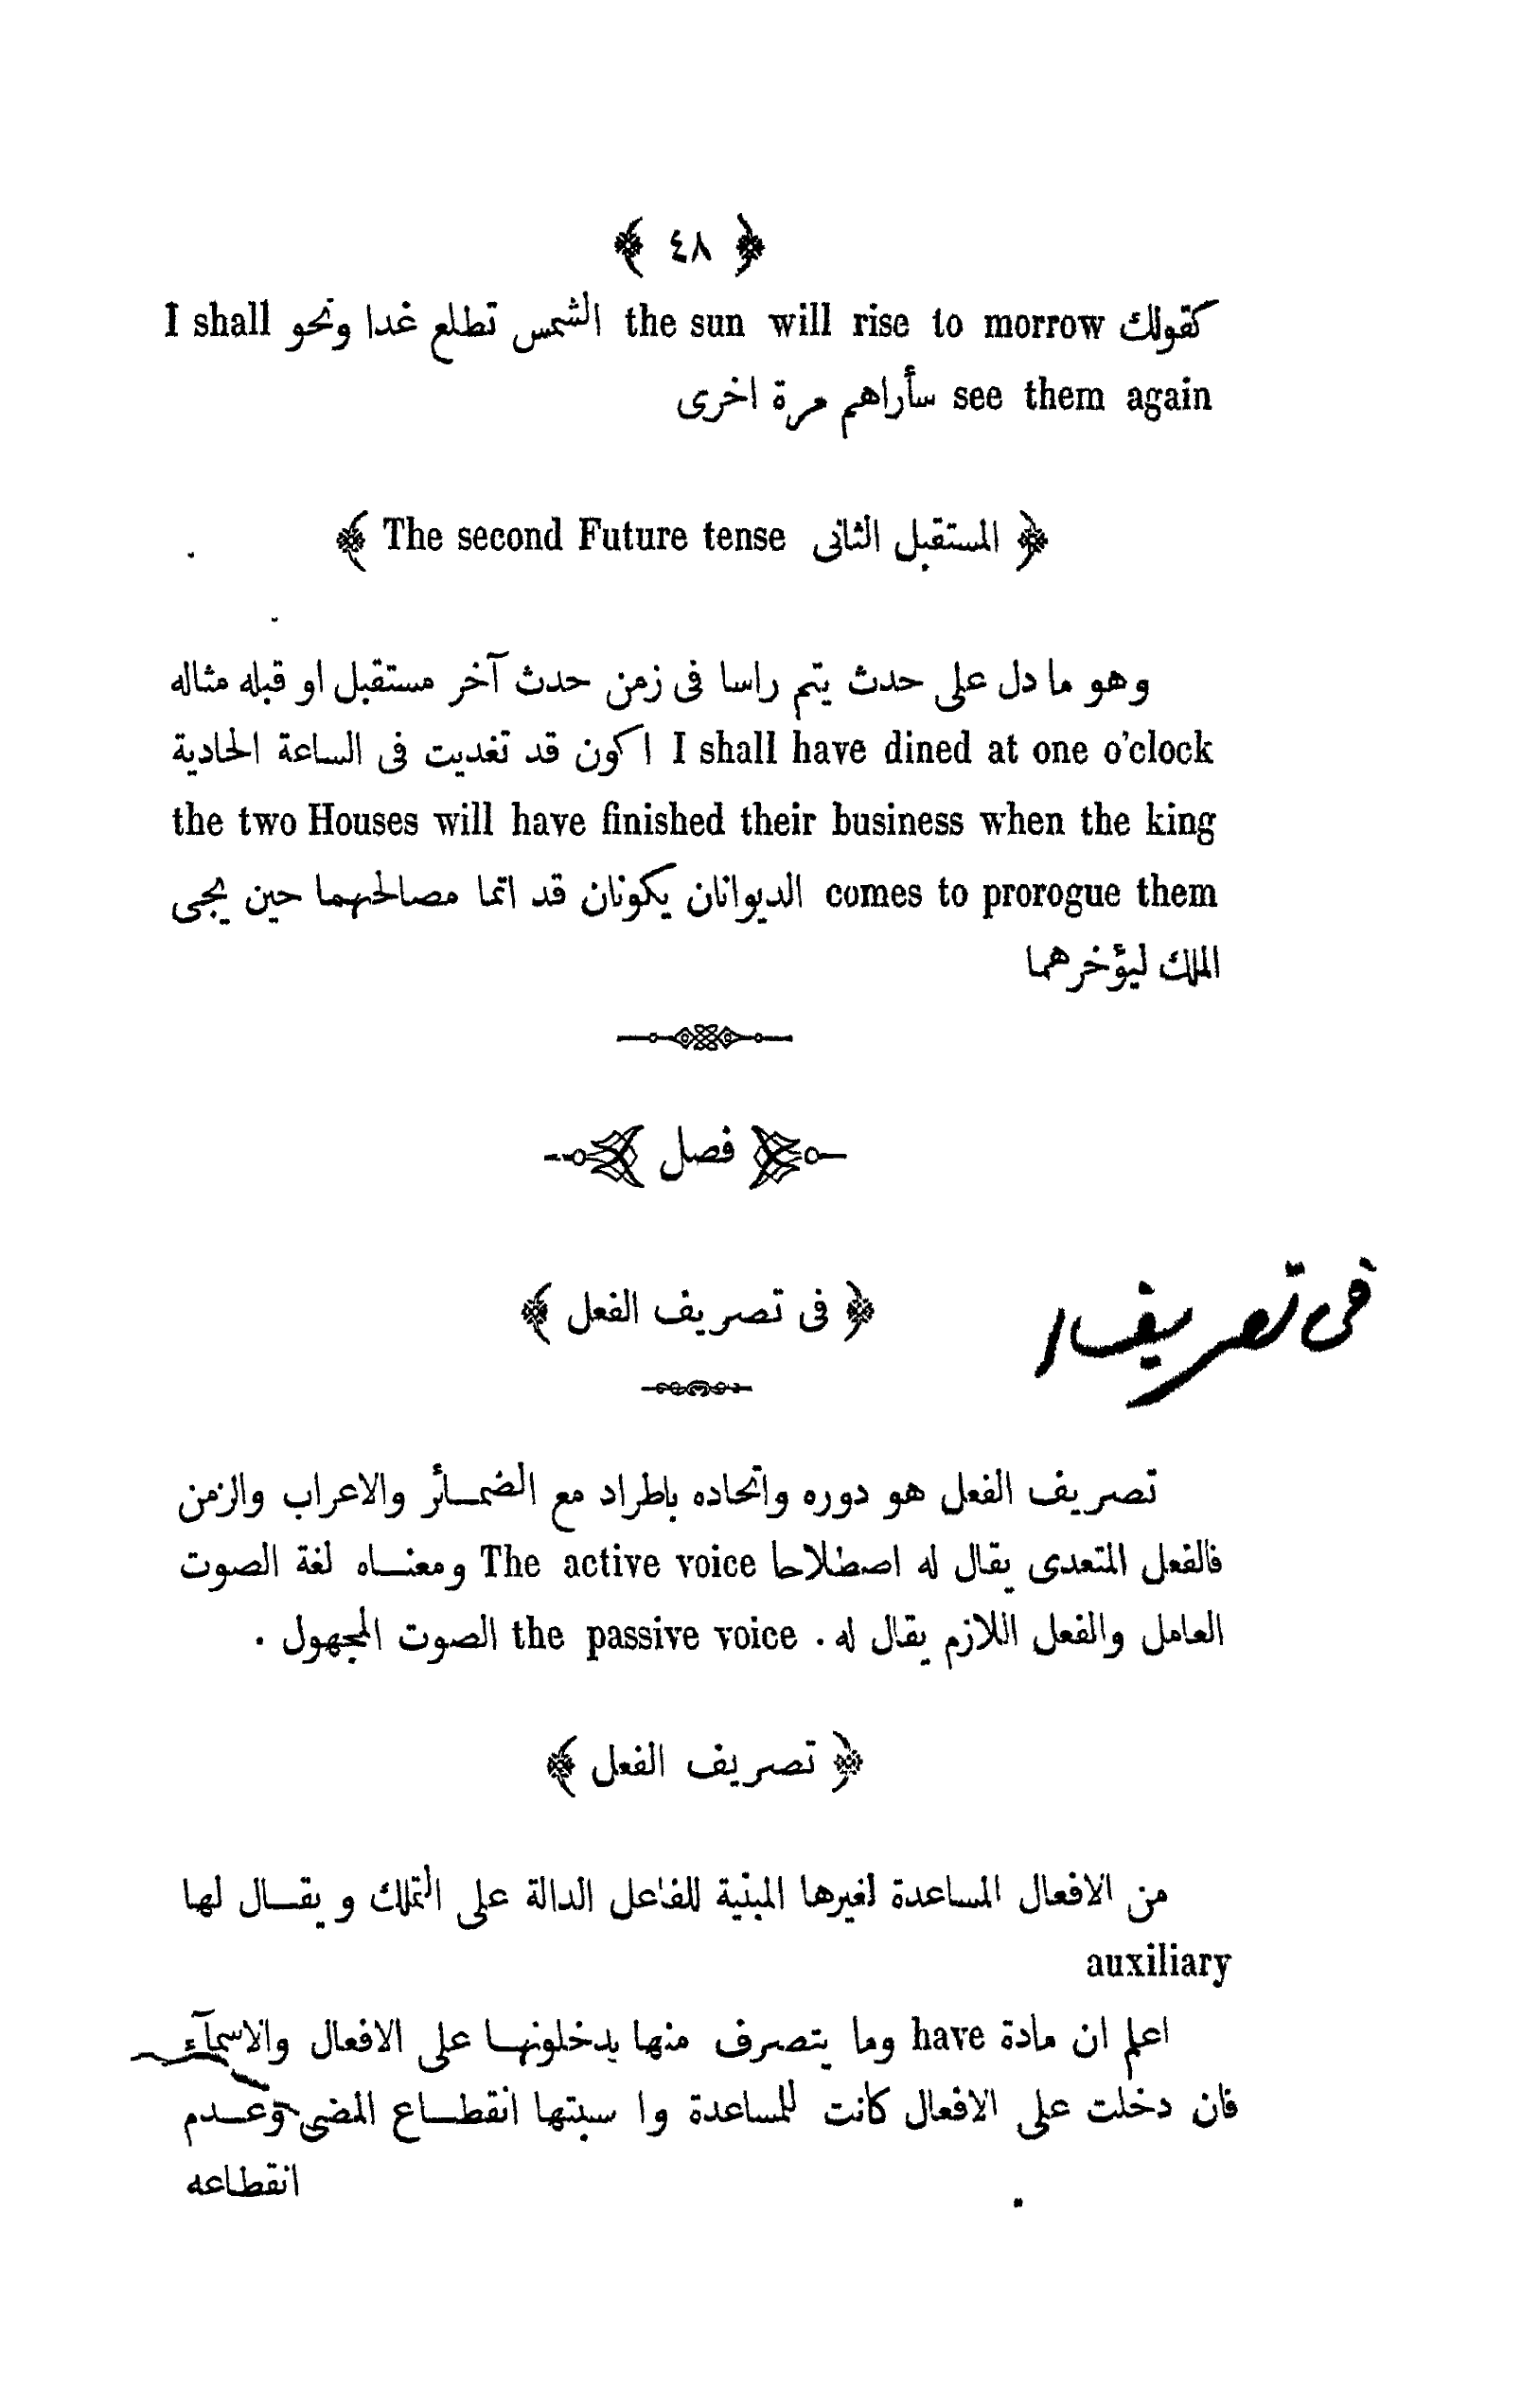 ﴿ ٤٨ ﴾
كقولك the sun will rise to morrow الشمس تطلع غدا ونحو I shall
see them again سأراهم مرة اخرى
﴿ المستقبل الثانى The second Future tense ﴾
وهو ما دل على حدث يتم راسا فى زمن حدث آخر مستقبل او قبله مثاله
I shall have dined at one o'clock اكون قد تغديت فى الساعة الحادية
the two Houses will have finished their business when the king
comes to prorogue them الديوانان يكونان قد اتما مصالحهما حين يجى
الملك ليؤخرهما
فصل
﴿ فى تصريف الفعل ﴾
فى تصريف ا
تصريف الفعل هو دوره واتحاده باطراد مع الضمائر والاعراب والزمن
فالفعل المتعدى يقال له اصطلاحا The active voice ومعناه لغة الصوت
العامل والفعل اللازم يقال له . the passive voice الصوت المجهول .
﴿ تصريف الفعل ﴾
من الافعال المساعدة لغيرها المبنية للفاعل الدالة على التملك و يقال لها
auxiliary
اعلم ان مادة have وما يتصرف منها يدخلونها على الافعال والاسمآء
فان دخلت على الافعال كانت للمساعدة وا سبتها انقطاع المضى وعدم
انقطاعه